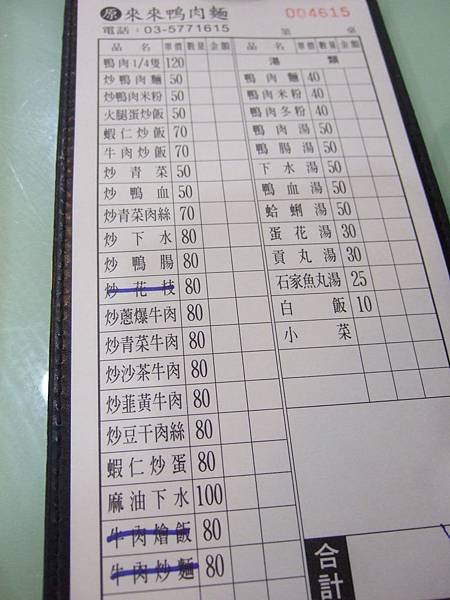 原 來來鴨肉麵 004615
電話：03-5771615 第 桌
品名 單價 數量 金額
鴨肉1/4隻 120
炒鴨肉麵 50
炒鴨肉米粉 50
火腿蛋炒飯 50
蝦仁炒飯 70
牛肉炒飯 70
炒青菜 50
炒鴨血 50
炒青菜肉絲 70
炒下水 80
炒鴨腸 80
炒花枝 80
炒蔥爆牛肉 80
炒青菜牛肉 80
炒沙茶牛肉 80
炒韮黃牛肉 80
炒豆干肉絲 80
蝦仁炒蛋 80
麻油下水 100
牛肉燴飯 80
牛肉炒麵 80
品名 單價 數量 金額
湯類
鴨肉麵 40
鴨肉米粉 40
鴨肉冬粉 40
鴨肉湯 50
鴨腸湯 50
下水湯 50
鴨血湯 50
蛤蜊湯 50
蛋花湯 30
貢丸湯 30
石家魚丸湯 25
白飯 10
小菜
合計